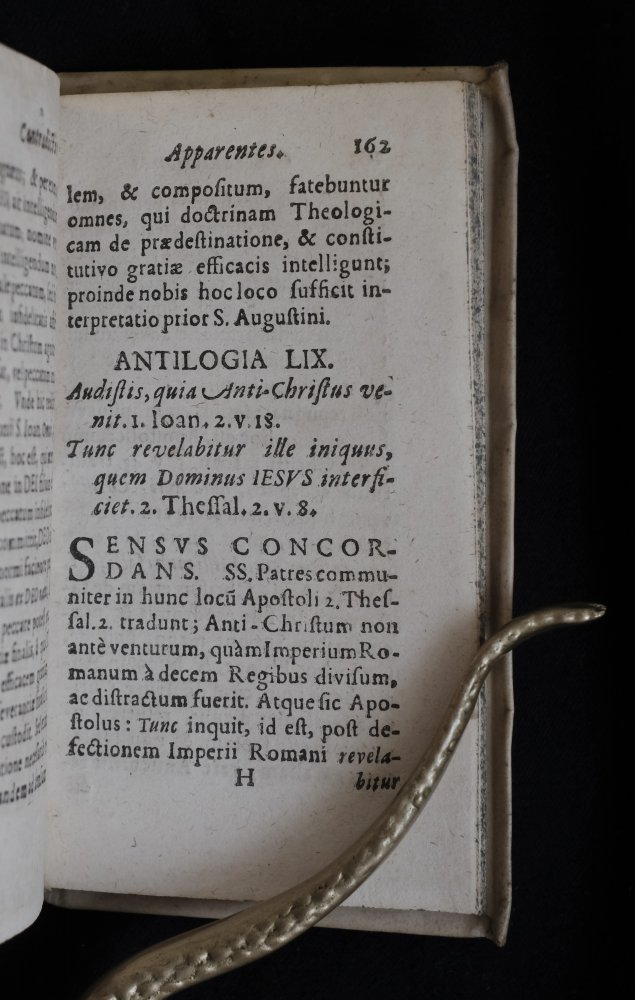 Apparentes. 162
lem, & compoſitum, fatebuntur
omnes, qui doctrinam Theologi-
cam de prædeſtinatione, & conſti-
tutivo gratiæ efficacis intelligunt;
proinde nobis hoc loco ſufficit in-
terpretatio prior S. Auguſtini.
ANTILOGIA LIX.
Audiſtis, quia Anti-Chriſtus ve-
nit. 1. Ioan. 2. v. 18.
Tunc revelabitur ille iniquus,
quem Dominus IESVS interfi-
ciet. 2. Theſſal. 2. v. 8.
SENSVS CONCOR-
DANS. SS. Patres commu-
niter in hunc locū Apoſtoli 2. Theſ-
ſal. 2. tradunt; Anti-Chriſtum non
antè venturum, quàm Imperium Ro-
manum à decem Regibus diviſum,
ac diſtractum fuerit. Atque ſic Apo-
ſtolus: Tunc inquit, id eſt, poſt de-
fectionem Imperii Romani revela-
H bitur